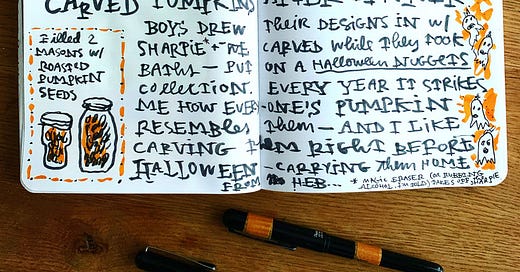 CARVED PUMPKINS
BOYS DREW THEIR DESIGNS IN W/
SHARPIE + WE CARVED while They TOOK
BATHS — PUT ON A Halloween NUGGETS
COLLECTION. EVERY YEAR IT STRIKES
ME HOW EVERY-ONE'S PUMPKIN
RESEMBLES THEM — AND I LIKE
CARVING THEM RIGHT BEFORE
HALLOWEEN — CARRYING Them HOME
FROM HEB...
Filled 2
MASONS W/
ROASTED
PUMPKIN
SEEDS
* MAGIC ERASER (OR RUBBING
ALCOHOL, I'M TOLD) TAKES OFF SHARPIE